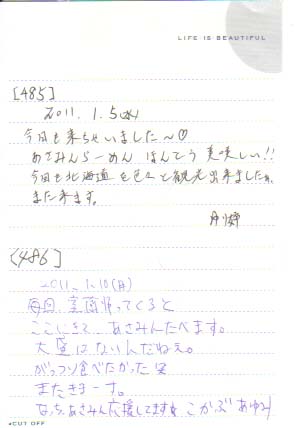 LIFE IS BEAUTIFUL
[485]
2011. 1. 5(水)
今日も来ちゃいました～♡
あさみんらーめん ほんとう 美味しい!!
今日も北海道を色々と観光出来ましたか、
また来ます。
<486]
2011. 1.10(月)
毎回、室蘭帰ってくると
ここにきて、あさみんたべます。
大盛はないんだねぇ。
がっつり食べたかった 笑
またきまーす。
なっち、あさみん応援してます★ こかぶ あゆみ
*CUT OFF